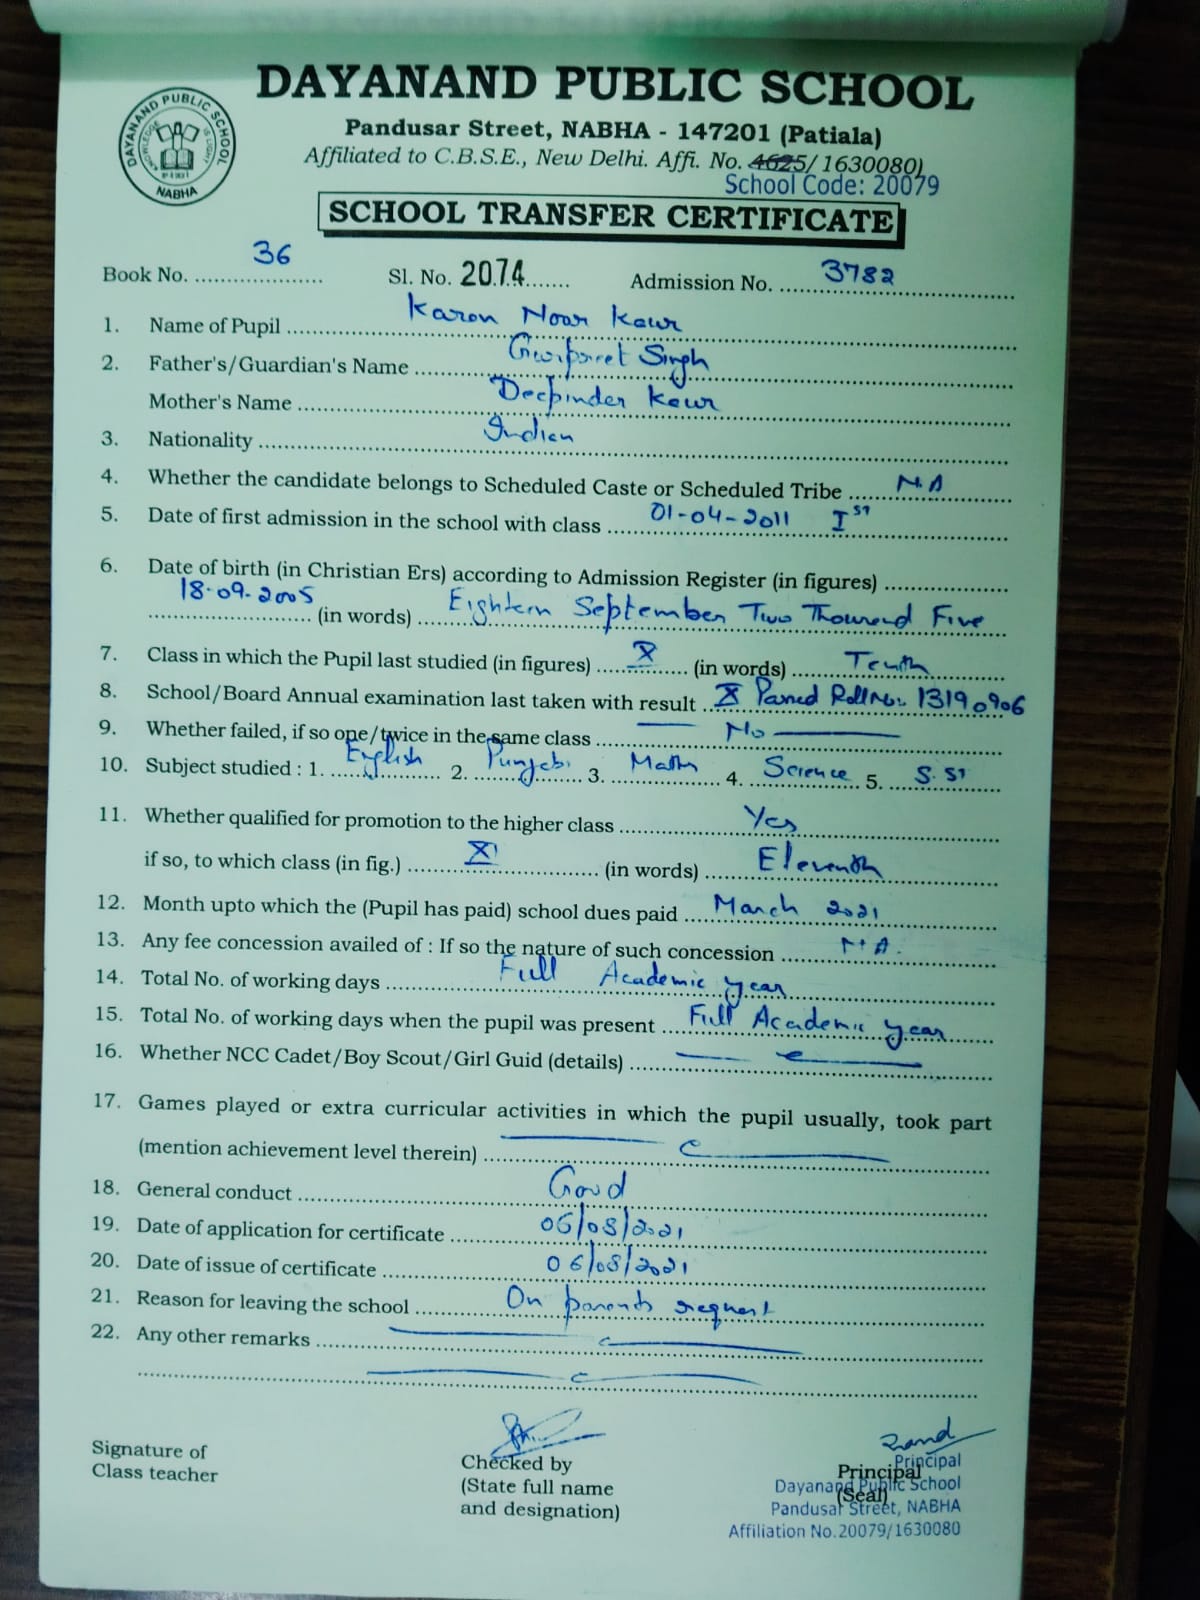 DAYANAND PUBLIC SCHOOL
DAYANAND PUBLIC SCHOOL
NABHA
Pandusar Street, NABHA - 147201 (Patiala)
Affiliated to C.B.S.E., New Delhi. Affi. No. 4625/1630080)
School Code: 20079
SCHOOL TRANSFER CERTIFICATE
Book No. 36 Sl. No. 2074 Admission No. 3782
1. Name of Pupil Karon Noor Kaur
2. Father's/Guardian's Name Gurpreet Singh
Mother's Name Deepinder Kaur
3. Nationality Indian
4. Whether the candidate belongs to Scheduled Caste or Scheduled Tribe N.A
5. Date of first admission in the school with class 01-04-2011 Ist
6. Date of birth (in Christian Ers) according to Admission Register (in figures)
18-09-2005 (in words) Eightern September Two Thousand Five
7. Class in which the Pupil last studied (in figures) X (in words) Tenth
8. School/Board Annual examination last taken with result X Passed Roll No. 13190906
9. Whether failed, if so one/twice in the same class No
10. Subject studied : 1. English 2. Punjabi 3. Math 4. Science 5. S. St
11. Whether qualified for promotion to the higher class Yes
if so, to which class (in fig.) XI (in words) Eleventh
12. Month upto which the (Pupil has paid) school dues paid March 2021
13. Any fee concession availed of : If so the nature of such concession N.A.
14. Total No. of working days Full Academic year
15. Total No. of working days when the pupil was present Full Academic year
16. Whether NCC Cadet/Boy Scout/Girl Guid (details)
17. Games played or extra curricular activities in which the pupil usually, took part
(mention achievement level therein)
18. General conduct Good
19. Date of application for certificate 06/08/2021
20. Date of issue of certificate 06/08/2021
21. Reason for leaving the school On parents request
22. Any other remarks
Signature of
Class teacher
Checked by
(State full name
and designation)
Principal
(Seal)
Principal
Dayanand Public School
Pandusar Street, NABHA
Affiliation No.20079/1630080